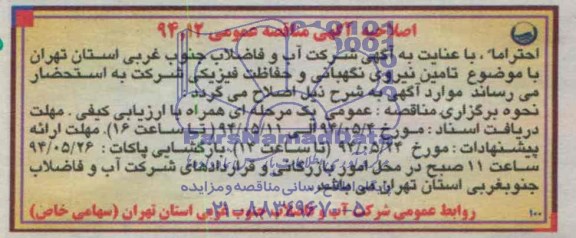 اصلاحیه آگهی مناقصه عمومی ۱۲-۹۴
احتراما، با عنایت به آگهی شرکت آب و فاضلاب جنوب غربی استان تهران
با موضوع تامین نیروی نگهبانی و حفاظت فیزیکی شرکت به استحضار
می رساند موارد آگهی به شرح ذیل اصلاح می گردد:
نحوه برگزاری مناقصه: عمومی یک مرحله ای همراه با ارزیابی کیفی. مهلت
دریافت اسناد: مورخ الی (تا ساعت ۱۶). مهلت ارائه
پیشنهادات: مورخ (تا ساعت ۱۳). بازگشایی پاکات: ۹۴/۰۵/۲۶
ساعت ۱۱ صبح در محل امور بازرگانی و قراردادهای شرکت آب و فاضلاب
جنوبغربی استان تهران می باشد.
روابط عمومی شرکت آب و فاضلاب جنوب غربی استان تهران (سهامی خاص)
۱۰۰
ParsNamadData
پایگاه اطلاع رسانی مناقصه و مزایده
۰۲۱-۸۸۳۴۹۶۷۰-۵